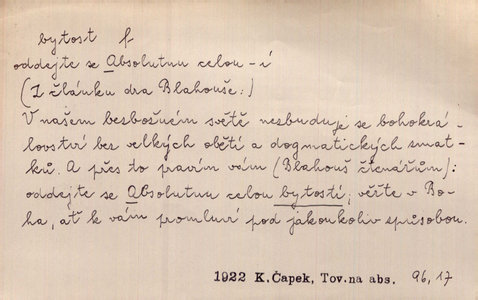 bytost f
oddejte se Absolutnu celou -í
(Z článku dra Blahouše:)
V našem bezbožném světě nezbuduje se bohokrá-
lovství bez velkých obětí a dogmatických zmat-
ků. A přes to pravím vám (Blahouš čtenářům):
oddejte se Absolutnu celou bytostí, věřte v Bo-
ha, ať k vám promluví pod jakoukoliv způsobou.
1922 K.Čapek, Tov.na abs. 96,17